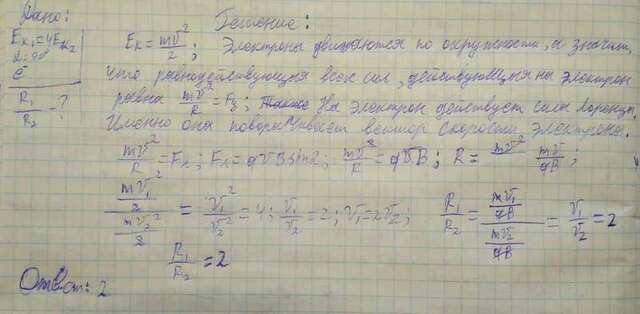 Дано:
Решение:
Eк₁=4Eк₂
α=90°
e⁻
R₁/R₂ = ?
Eк = mv²/2 ; Электроны движутся по окружности, а значит,
что равнодействующая всех сил, действующих на электрон
равна mv²/R = F ; На электрон действует сила Лоренца.
Именно она поворачивает вектор скорости электрона.
mv²/R = Fл ; Fл = qvB sinα ; mv²/R = qvB ; R = mv/qB ;
(mv₁²/2)/(mv₂²/2) = v₁²/v₂² = 4 ; v₁/v₂ = 2 ; v₁ = 2v₂ ; R₁/R₂ = (mv₁/qB)/(mv₂/qB) = v₁/v₂ = 2
R₁/R₂ = 2
Ответ: 2